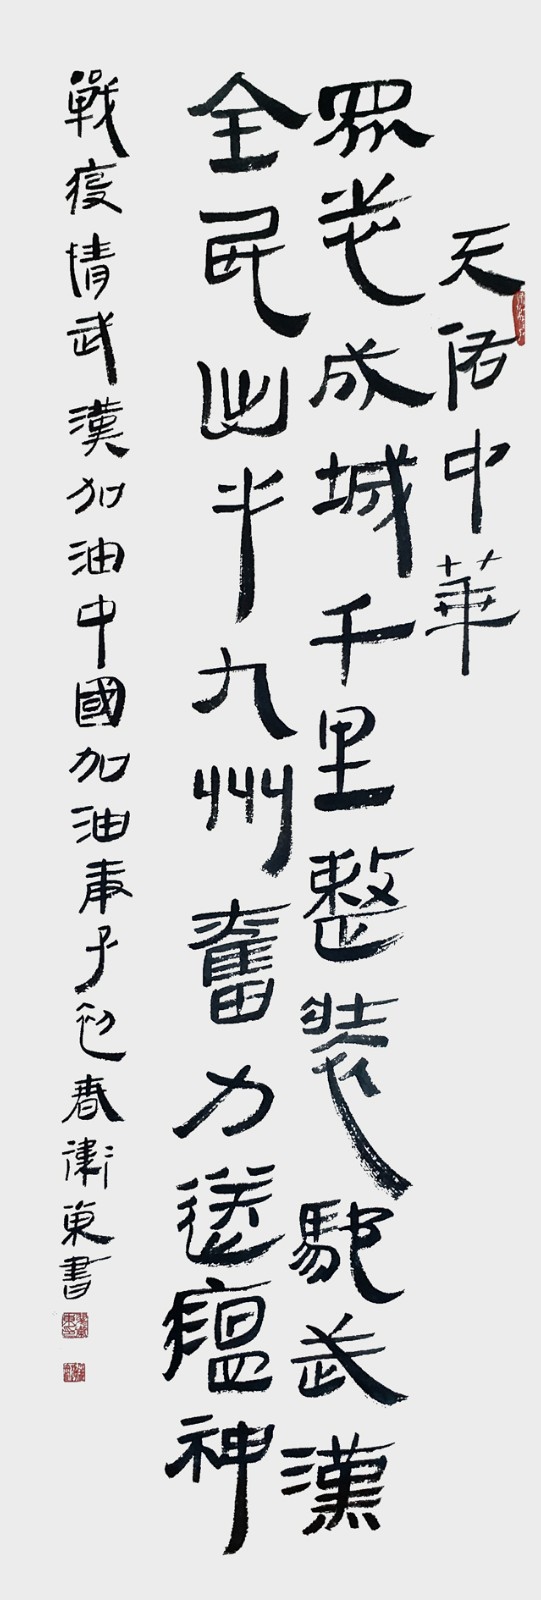 天佑中華
眾志成城千里整裝馳武漢
全民出手九州奮力送瘟神
戰疫情武漢加油中國加油庚子初春衛東書